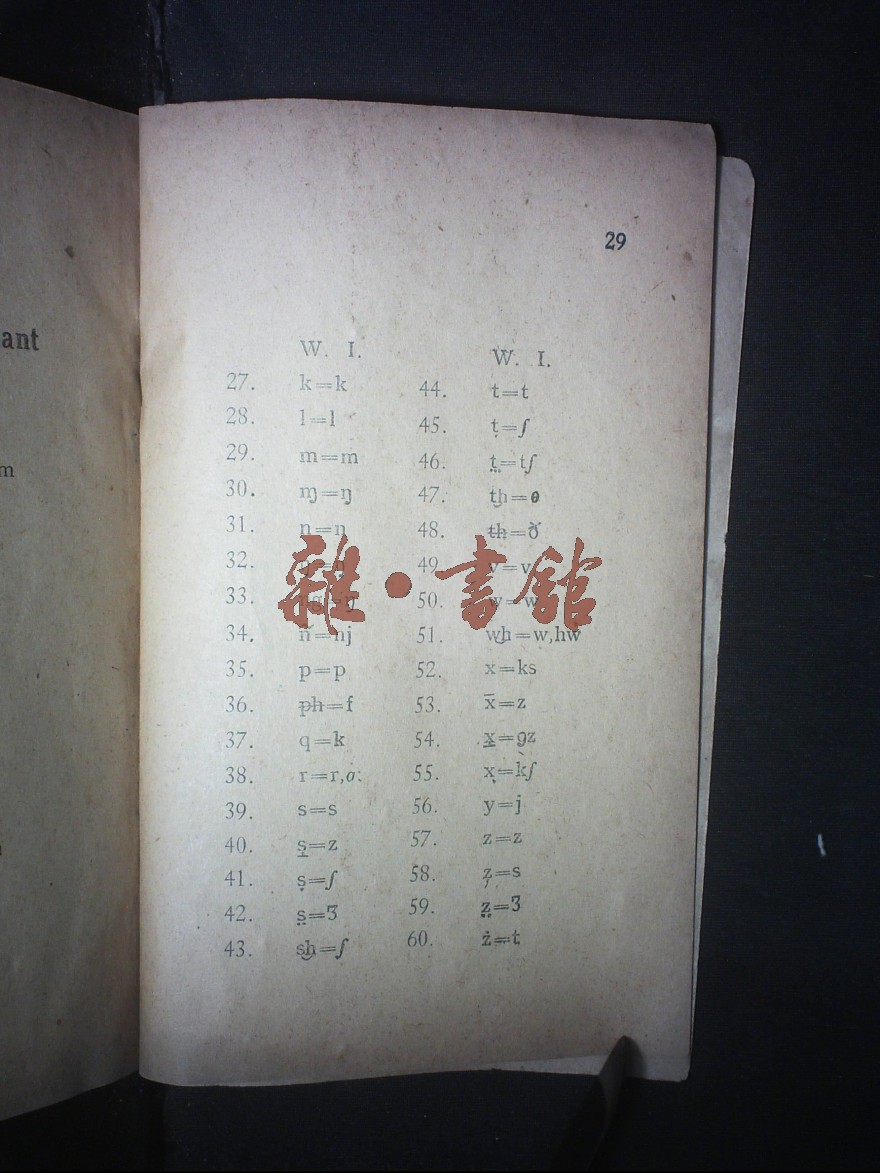 ant
m
29
W. I.
27. k=k
28. l=l
29. m=m
30. ɱ=ŋ
31. n=n
32.
33.
34. ñ=nj
35. p=p
36. p̶h̶=f
37. q=k
38. r=r,ɑ:
39. s=s
40. s̱=z
41. ṣ=ʃ
42. s̤=ʒ
43. s͜h=ʃ
W. I.
44. t=t
45. ṭ=ʃ
46. t̤=tʃ
47. t͜h=θ
48. t̶h̶=ð
49. v=v
50. w=w
51. w͜h=w,hw
52. x=ks
53. x̄=z
54. x̱=gz
55. x̣=kʃ
56. y=j
57. z=z
58. z̦=s
59. z̤=ʒ
60. ż=t
雜·書舘